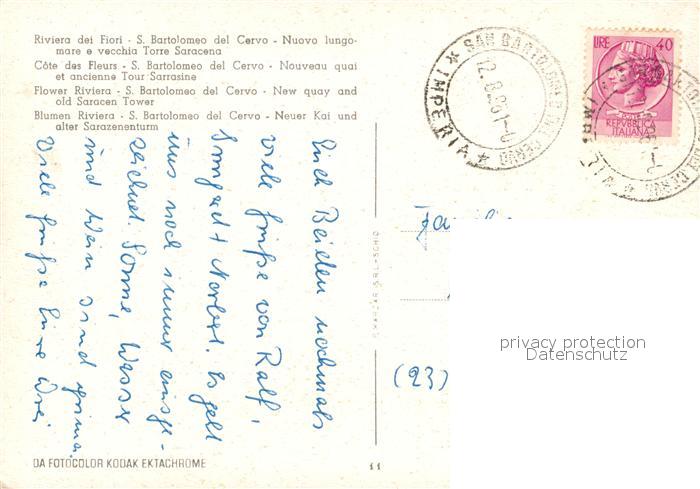 Riviera dei Fiori - S. Bartolomeo del Cervo - Nuovo lungo-
mare e vecchia Torre Saracena
Côte des Fleurs - S. Bartolomeo del Cervo - Nouveau quai
et ancienne Tour Sarrasine
Flower Riviera - S. Bartolomeo del Cervo - New quay and
old Saracen Tower
Blumen Riviera - S. Bartolomeo del Cervo - Neuer Kai und
alter Sarazenenturm
Euch Beiden nochmals
viele Grüße von Ralf,
Irmgard + Norbert. Es geht
uns noch immer ausge-
zeichnet. Sonne, Wasser
und Wein sind prima.
Viele Grüße Eure Drei
DA FOTOCOLOR KODAK EKTACHROME
11
SAN BARTOLOMEO DEL CERVO
* IMPERIA *
LIRE 40
REPVBBLICA
ITALIANA
Familie
(23)
privacy protection
Datenschutz